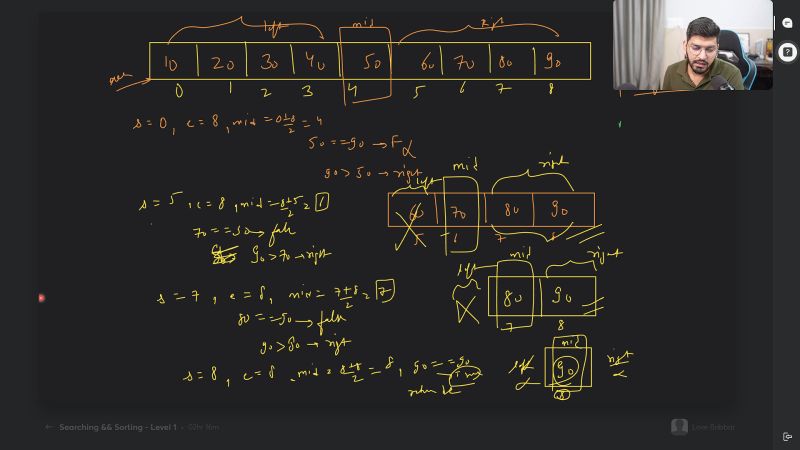 left mid right
10 20 30 40 50 60 70 80 90
0 1 2 3 4 5 6 7 8
s=0, e=8, mid=0+8/2=4
50==90→F
90>50→right
mid right
left
60 70 80 90
5 6 7 8
s=5, e=8, mid=8+5/2=
70==90→false
90>70→right
left mid right
80 90
7 8
s=7, e=8, mid=7+8/2=7
80==90→false
90>80→right
mid
left 90 right
8
s=8, e=8, mid=8+8/2=8, 90==90
True
return
← Searching && Sorting - Level 1 • 02hr 16m
Love Babbar